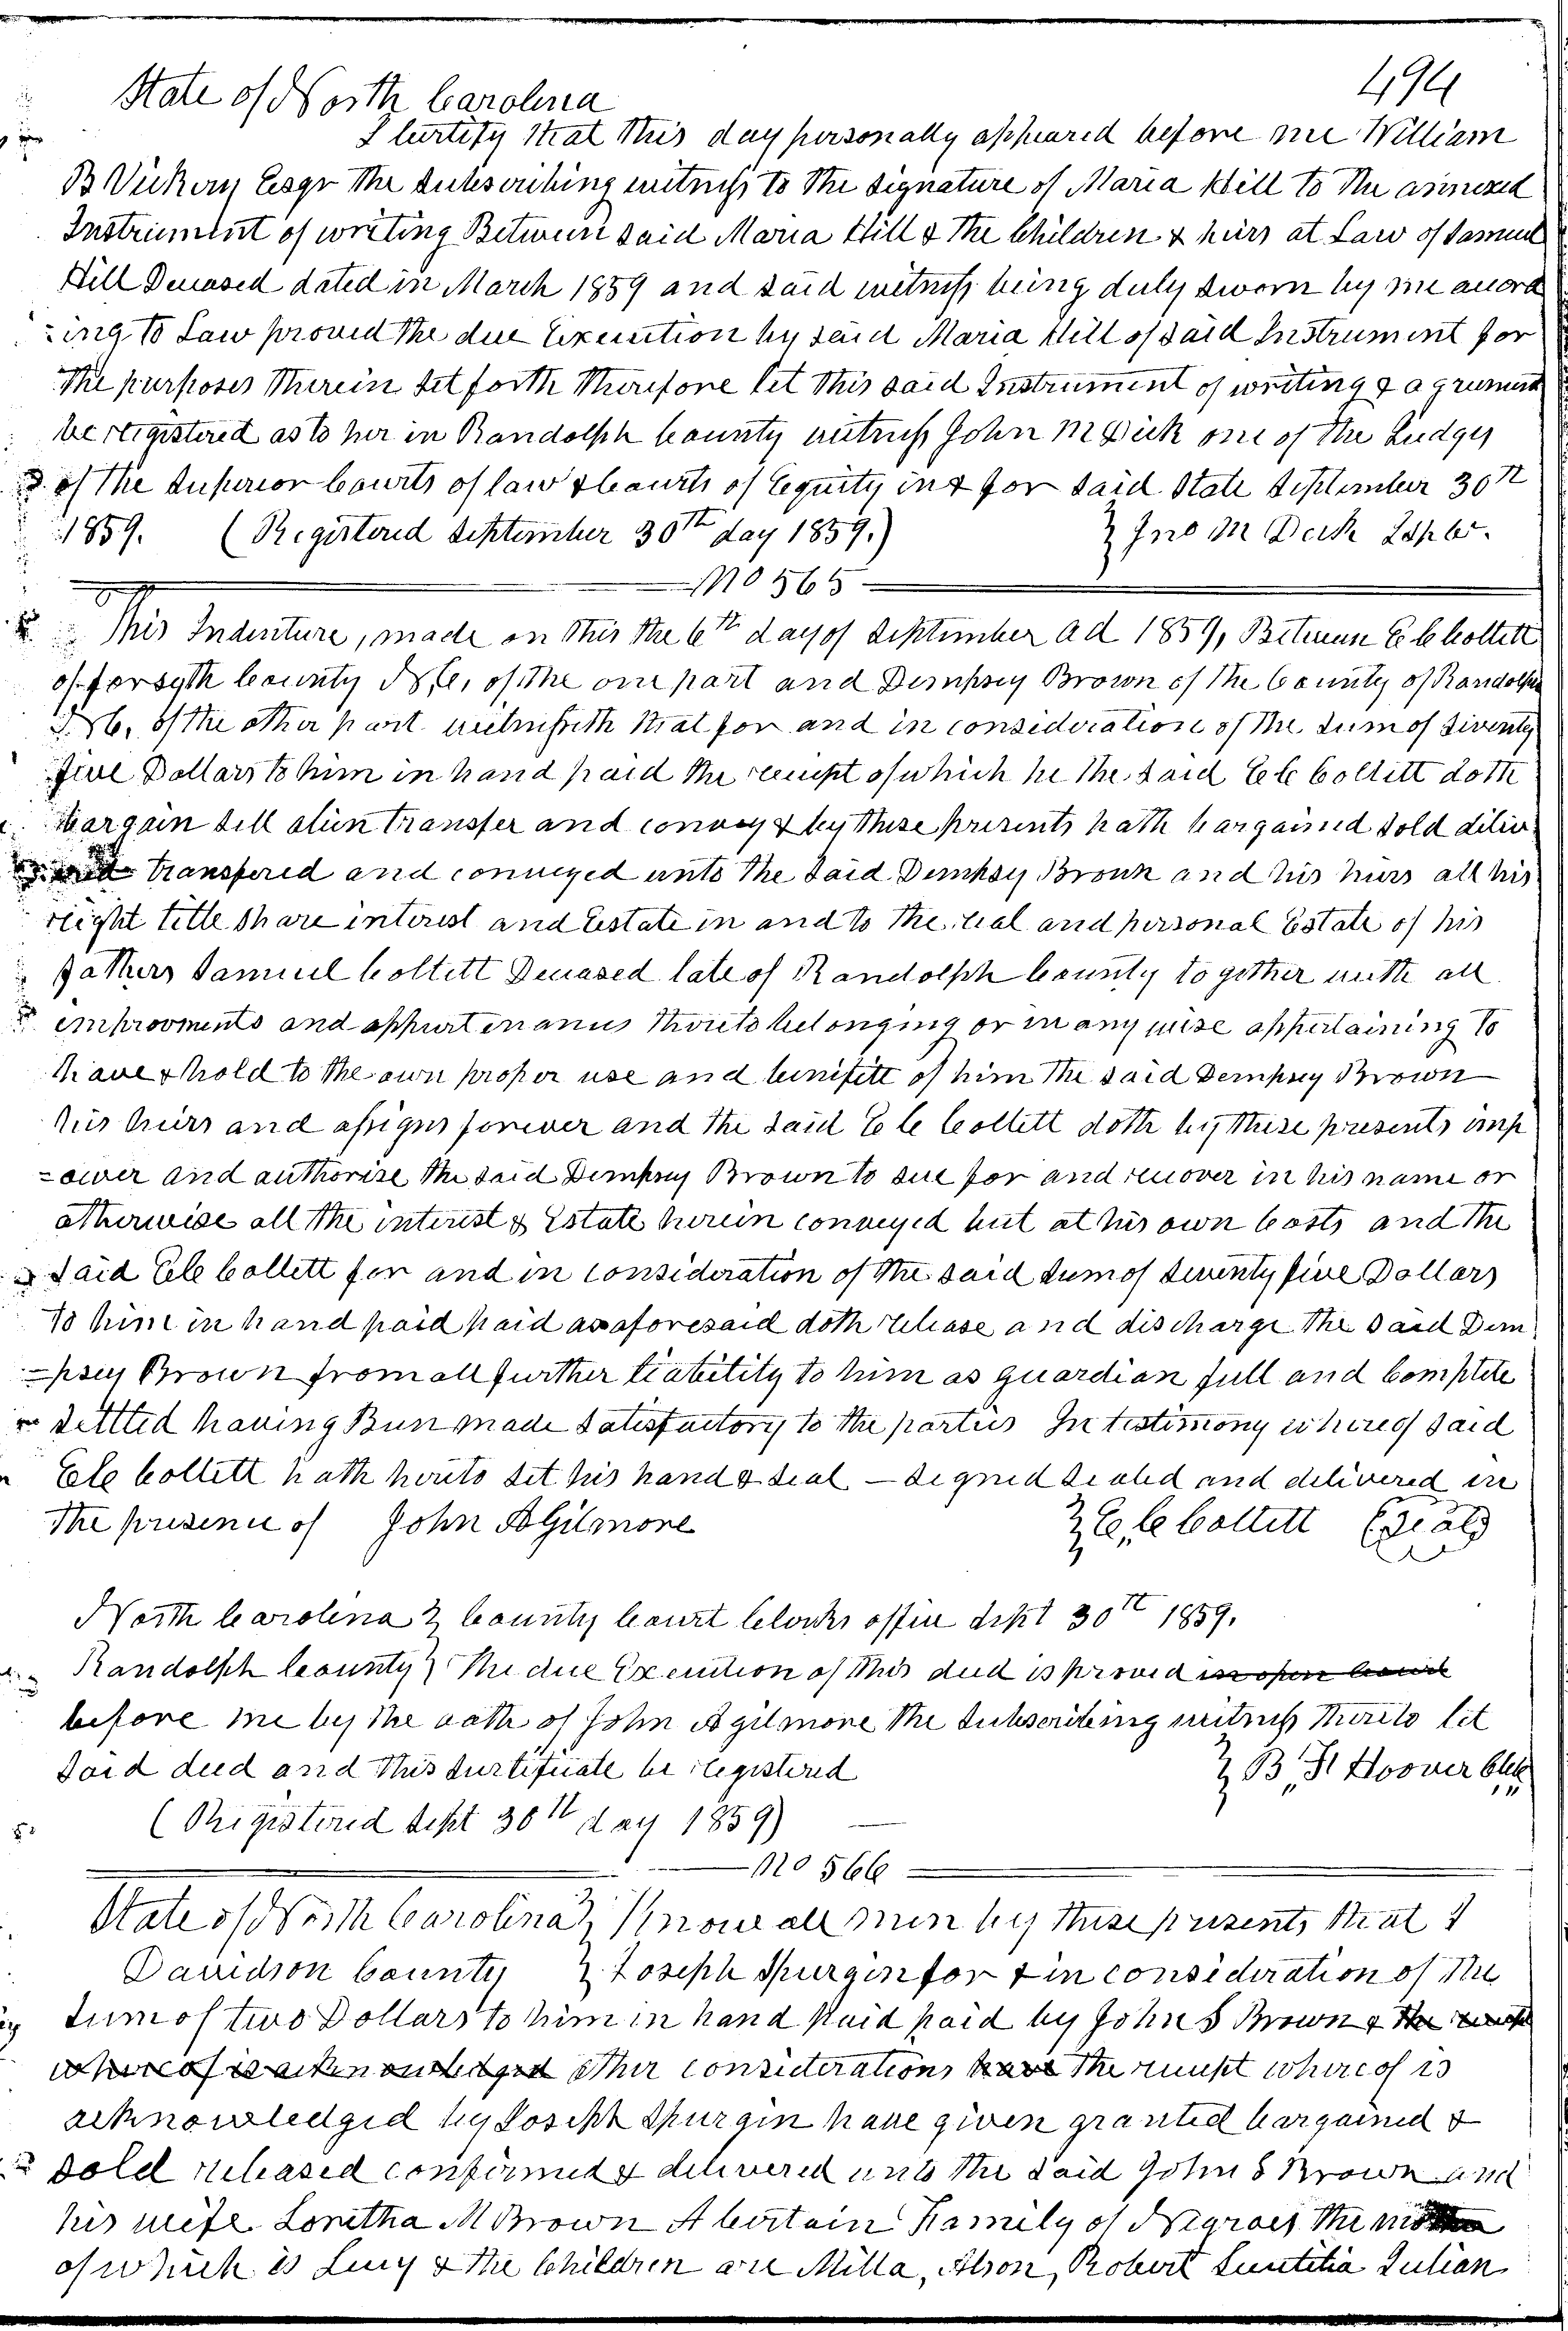 494
State of North Carolina
I Certify that this day personally appeared before me William
B Vickory Esqr the subscribing witness to the signature of Maria Hill to the annexed
Instrument of writing Between said Maria Hill & the Children & heirs at Law of Samuel
Hill Deceased dated in March 1859 and said witness being duly sworn by me accord
-ing to Law proved the due Execution by said Maria Hill of said Instrument for
the purposes therein set forth therefore let this said Instrument of writing & agreement
be registered as to her in Randolph County witness John M Dick one of the Judges
of the Superior Courts of law & Courts of Equity in & for said State September 30th
1859. (Registered September 30th day 1859.) Jno M Dick
No 565
This Indenture, made on this the 6th day of September A d 1859, Between E C Collett
of forsyth County N, C, of the one part and Dempsey Brown of the County of Randolph
N C, of the other part witnesseth that for and in consideration of the sum of Seventy
five Dollars to him in hand paid the receipt of which he the said E C Collett doth
bargain sell alien transfer and convey & by these presents hath bargained sold deliv
transfered and conveyed unto the said Dempsy Brown and his heirs all his
reight title share interest and Estate in and to the real and personal Estate of his
fathers Samuel Coltett Deceased late of Randolph County together with all
improvments and appurtenances thereto belonging or in any wise appertaining to
have & hold to the own proper use and benifitt of him the said Dempsey Brown
his heirs and assigns forever and the said E C Collett doth by these presents imp
-ower and authorise the said Dempsey Brown to sue for and recover in his name or
otherwise all the interest & Estate herein conveyed but at his own Costs and the
said E C Collett for and in consideration of the said sum of seventy five Dollars
to him in hand paid paid as aforesaid doth release and discharge the said Dem
-psey Brown from all further liability to him as guardian full and Complete
settled having Bun made Satisfactory to the parties In testimony whereof said
E C Collett hath hereto set his hand & seal — signed sealed and delivered in
the presence of John A Gilmore E, C Collett (Seal)
North Carolina County Court Clerks office Sept 30th 1859.
Randolph County The due Execution of this deed is proved in open Court
before me by the oath of John A gilmore the Subscribing witness thereto let
said deed and this Certificate be registered B, F Hoover Clk
(Registered Sept 30th day 1859)
No 566
State of North Carolina Know all men by these presents that I
Davidson County Joseph Spurgin for & in consideration of the
sum of two Dollars to him in hand paid paid by John S Brown & the receipt
whereof is acknowledged other considerations have the receipt whereof is
acknowledged by Joseph Spurgin have given granted bargained &
sold released confirmed & delivered unto the said John S Brown and
his wife Loretha M Brown A Certain Family of Negroes the mother
of which is Lucy & the Children are Milla, Alson, Robert Julian